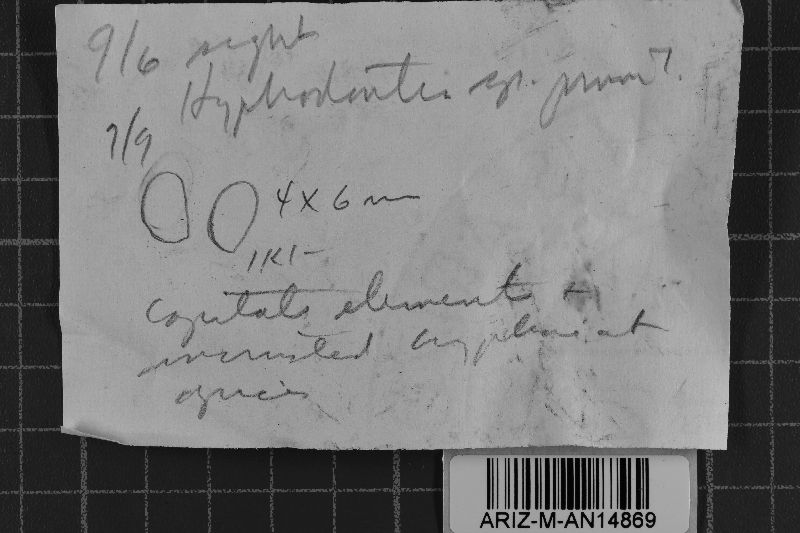 9/6 sight
Hyphodontia sp.
7/9
4 x 6 m
IKI-
capitate elements +
incrusted at
apices
ARIZ-M-AN14869